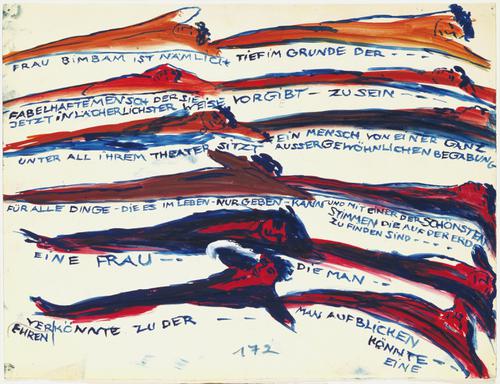 FRAU BIMBAM IST NÄMLICH TIEF IM GRUNDE DER ----
FABELHAFTE MENSCH DER SIE
JETZT IN LÄCHERLICHSTER WEISE VORGIBT - ZU SEIN ----
UNTER ALL IHREM THEATER SITZT EIN MENSCH VON EINER GANZ
AUSSERGEWÖHNLICHEN BEGABUNG
FÜR ALLE DINGE - DIE ES IM LEBEN - NUR GEBEN - KANN UND MIT EINER DER SCHÖNSTEN
STIMMEN DIE AUF DER ERDE
ZU FINDEN SIND ----
EINE FRAU --- DIE MAN ---
VEREHREN KÖNNTE ZU DER --- MAN AUFBLICKEN
KÖNNTE ---
EINE
172